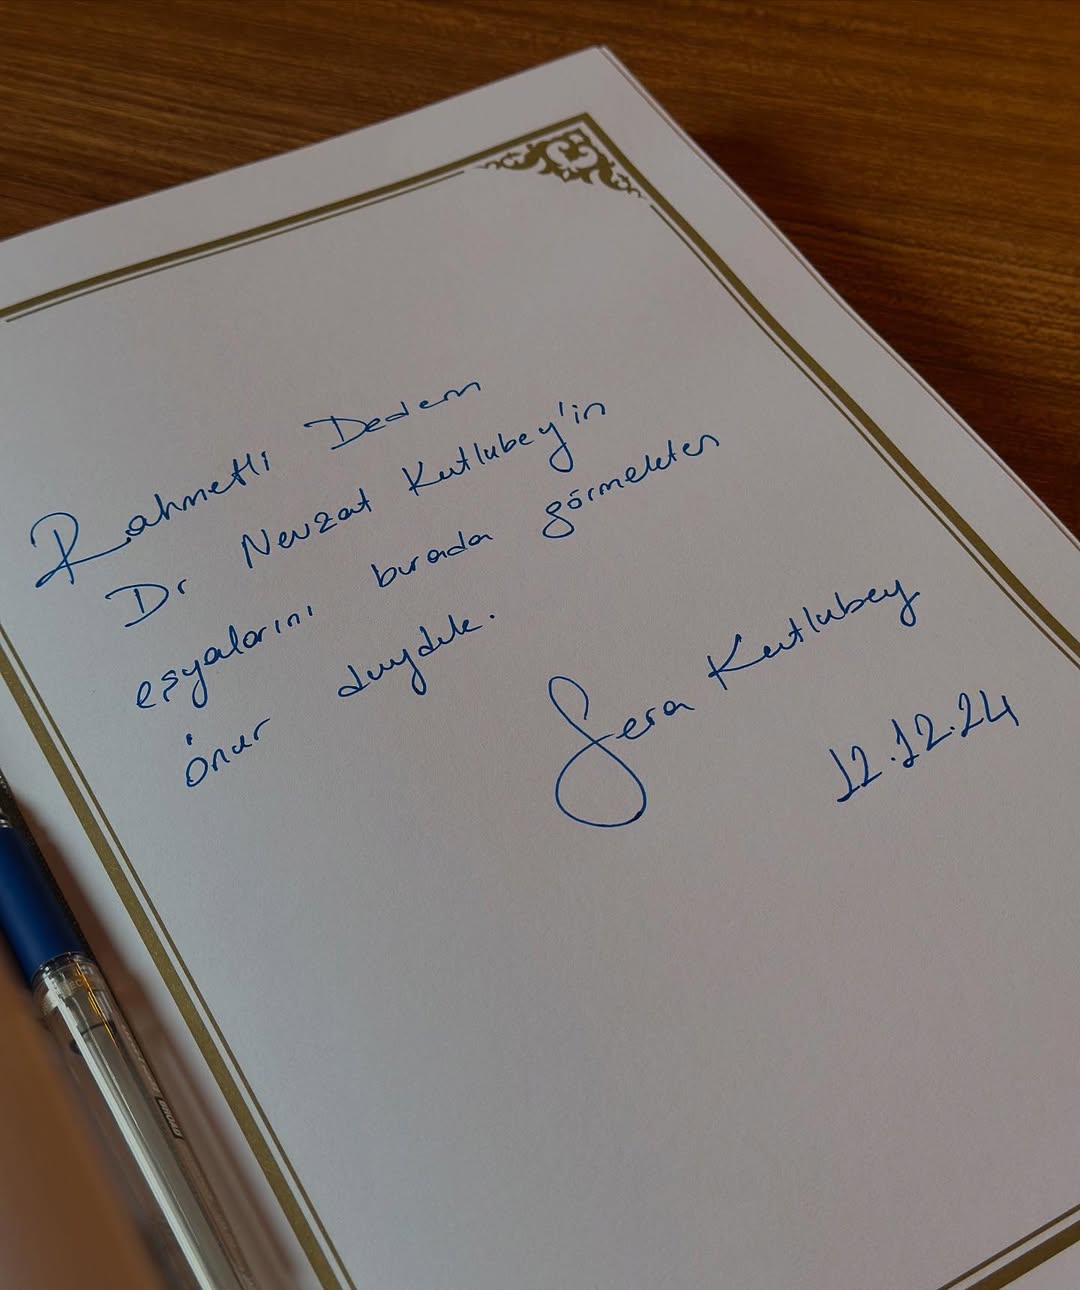 Rahmetli Dedem
Dr Nevzat Kutlubey'in
eşyalarını burada görmekten
onur duyduk.
Sera Kutlubey
12.12.24